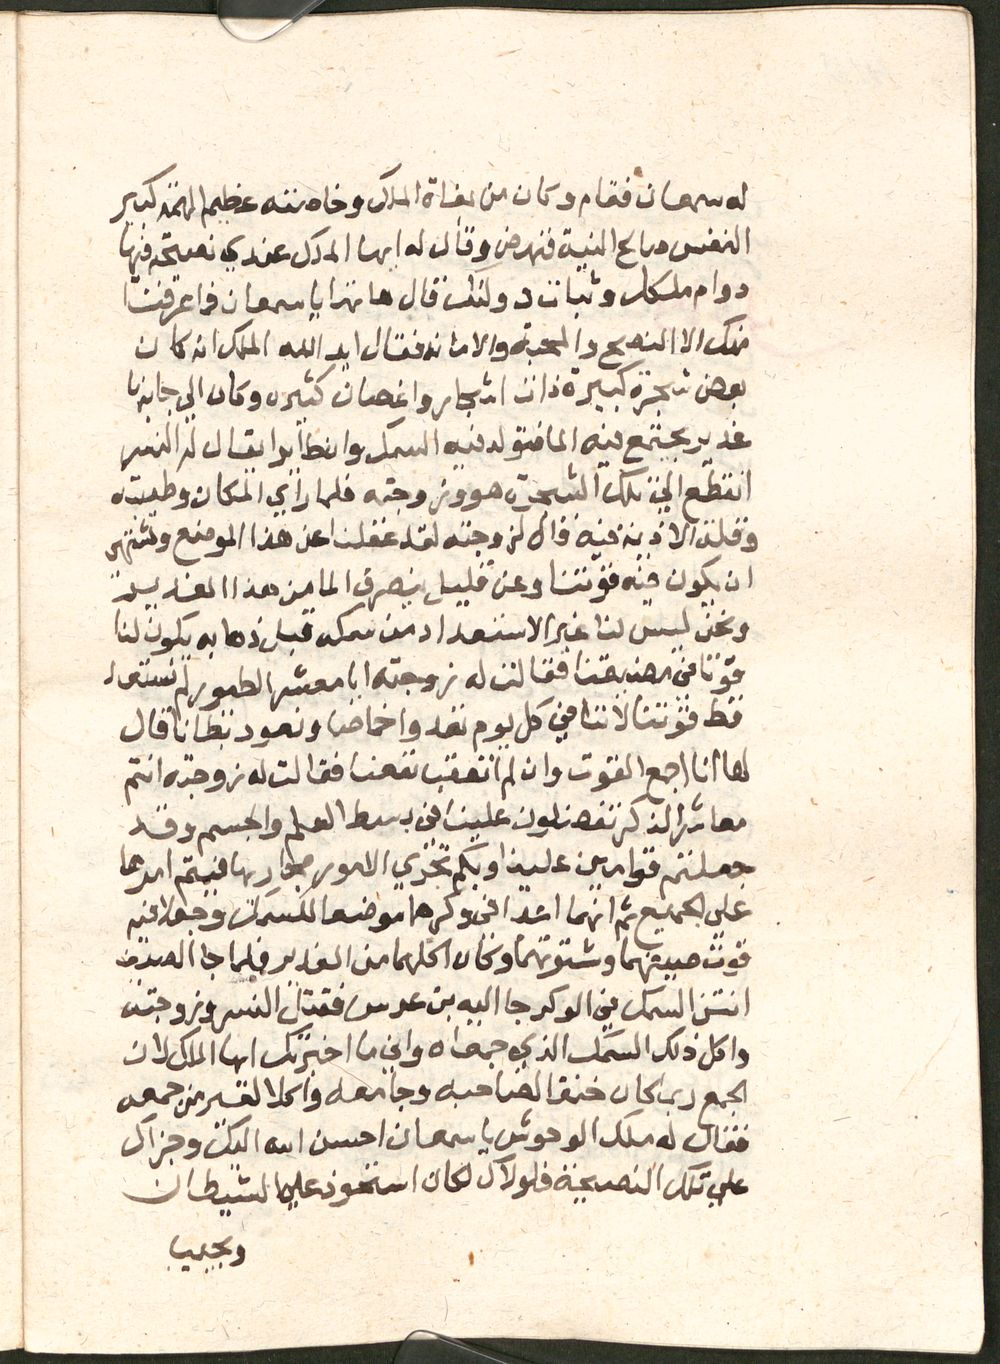 له سمعان فقام وكان من ثقاة الملك وخاصته عظيم الهمة كبير
النفس صالح النية فنهض وقال له ايها الملك عندي نصيحة فيها
دوام ملكك وثبات دولتك فقال هاتها يا سمعان فما عرفنا
منك الا النصح والمحبة والامانه فقال ايد الله الملك انه كان
بعض شجرة كبيرة ذات اشجار واغصان كثيره وكان الي جانبها
غدير يجتمع فيه الما فتولد فيه السمك وان طايرا يقال له النسر
انقطع الي تلك الشجره هو وزوجته فلما راي المكان وطيبته
وقلة الاذيه فيه قال لزوجته لقد غفلنا عن هذا الموضع
ان يكون فيه قوتنا وعن قليل ينصرف الما من هذا الغدير
ونحن ليس لنا غير الاستعداد من سمكه قبل ذهابه يكون لنا
قوتا في فقالت له زوجته انا معشر الطيور لم نستعد
قط قوتنا لاننا في كل يوم نغدوا خماصا ونعود بطانا قال
لها انا اجمع القوت وان لم اتعقب نفعنا فقالت له زوجته انتم
معاشر الذكر تفضلون علينا في بسط العلم والجسم وقد
جعلتم قوامين علينا وبكم تجري الامور مجاريها فيتم امرهما
علي الجميع ثم انهما اعدا في وكرهما موضعا للسمك وجعلا فيه
قوت صيفهما وشتوتهما وكان اكلهما من الغدير فلما جا الصيف
انتن السمك في الوكر جا اليه بن عرس فقتل النسر وزوجته
واكل ذلك السمك الذي جمعاه واني ما اخبرتك ايها الملك لان
الجمع ربما كان حتفا لصاحبه وجامعه واكلا لغير من جمعه
فقال له ملك الوحوش يا سمعان احسن الله اليك وجزاك
علي تلك النصيحة فلولاك لكان استحوذ علي الشيطان